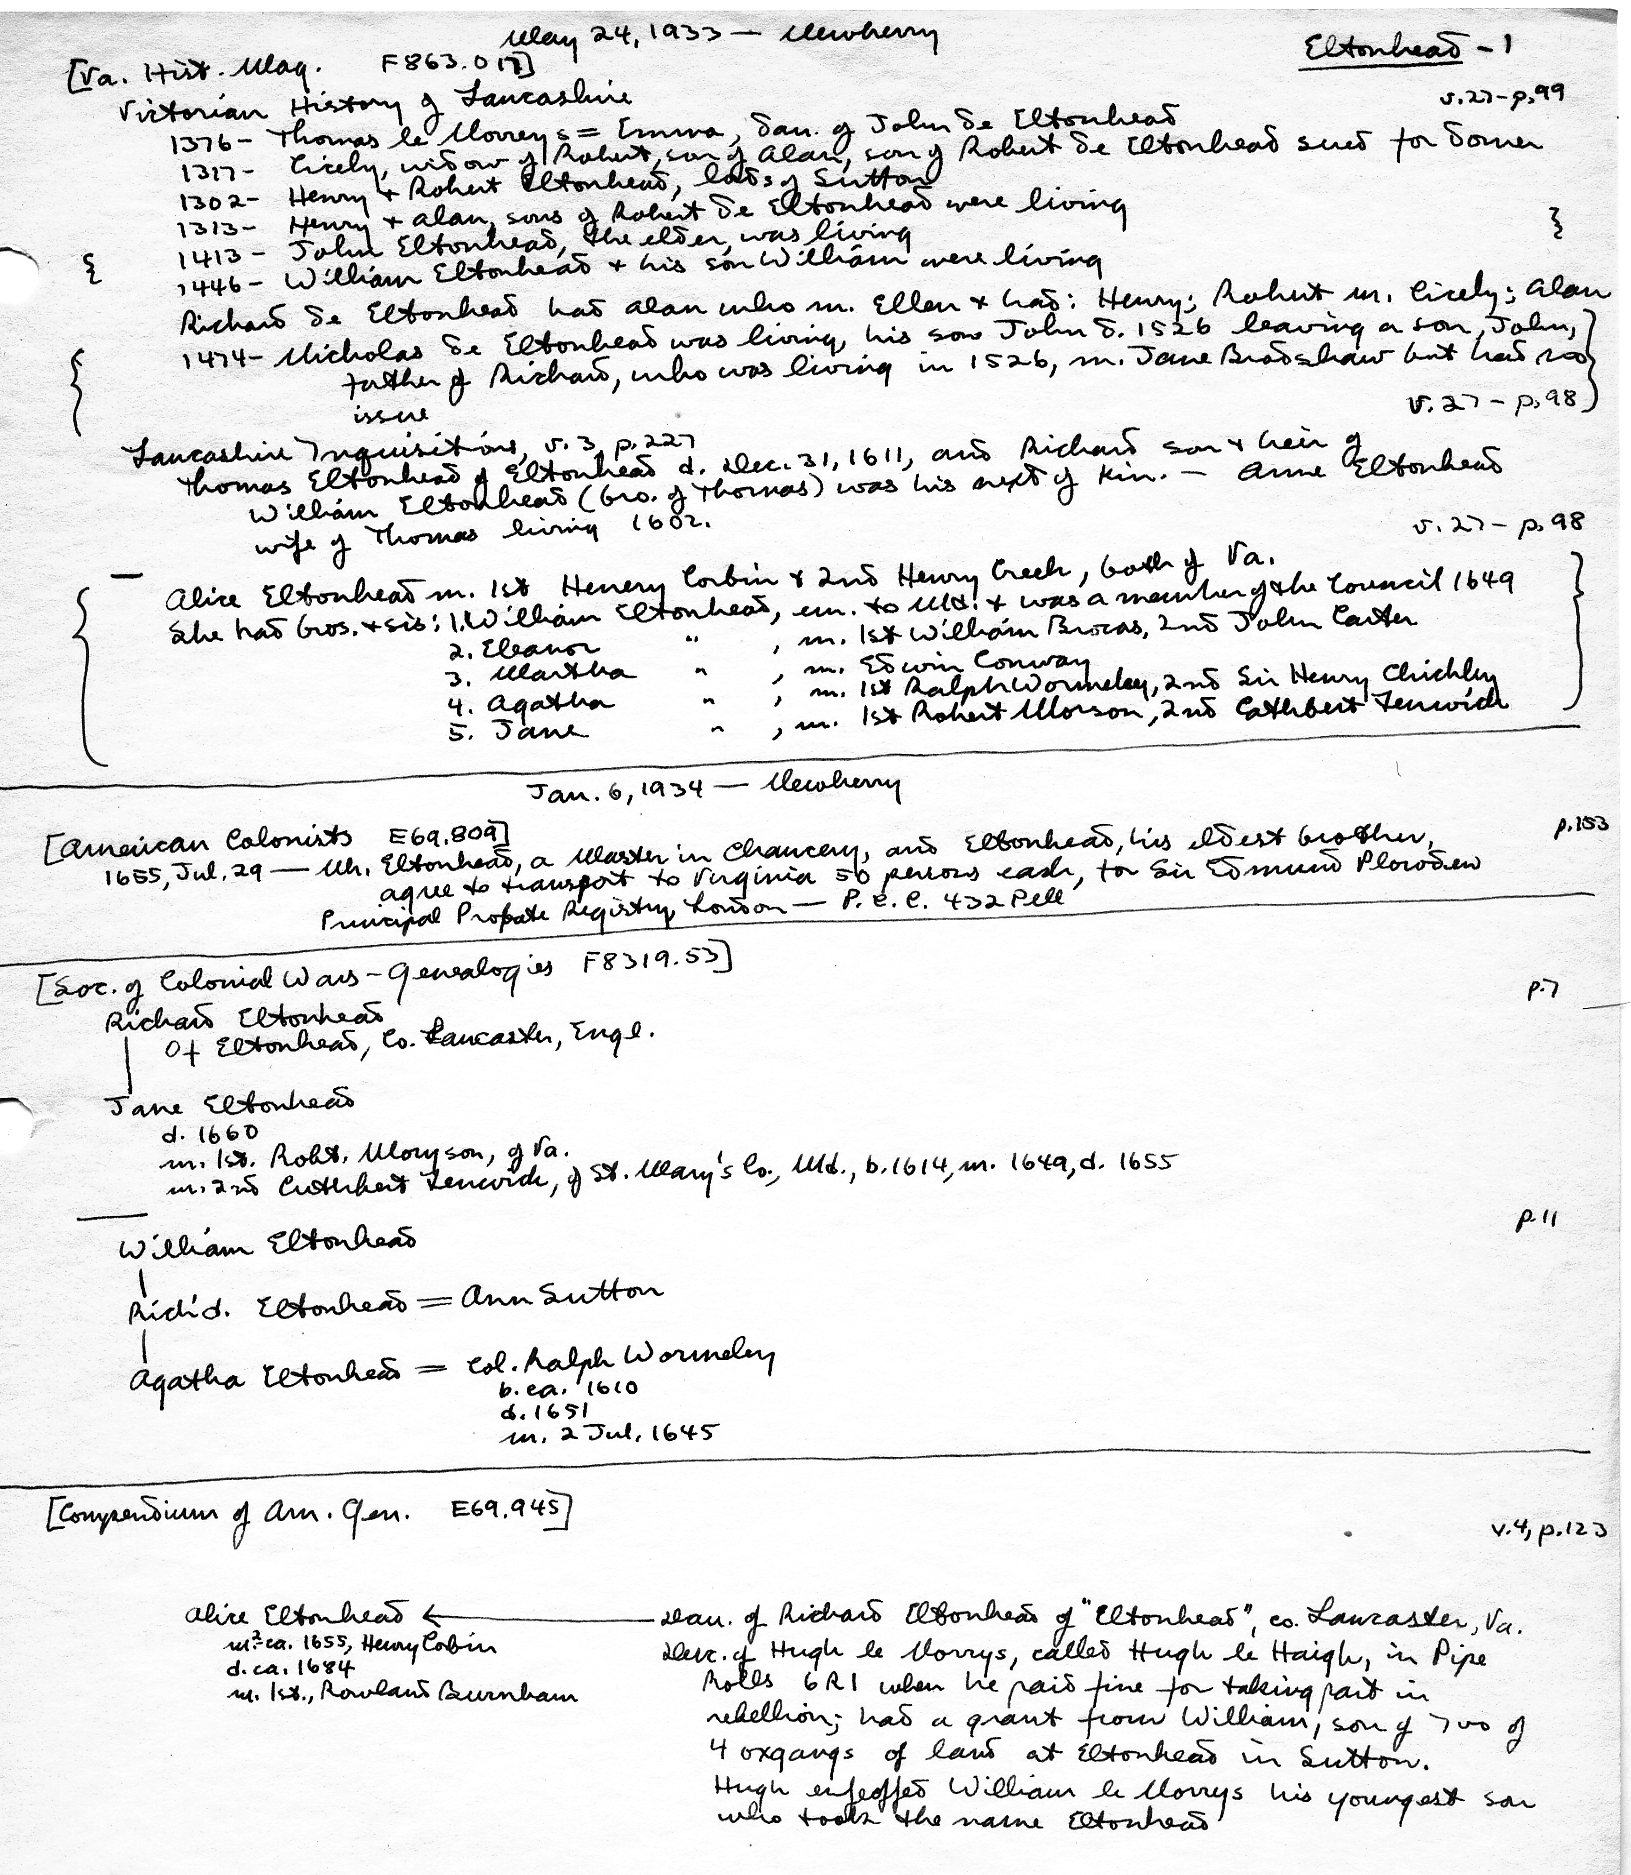 May 24, 1933 — Newberry
Eltonhead - 1
[Va. Hist. Mag. F863.017]
Victorian History of Lancashire v.27-p.99
1376- Thomas le Norreys = Emma, dau. of John de Eltonhead
1317- Cicely, widow of Robert, son of Alan, son of Robert de Eltonhead sued for dower
1302- Henry + Robert Eltonhead, lords of Sutton
1313- Henry + Alan, sons of Robert de Eltonhead were living
1413- John Eltonhead, the elder, was living
1446- William Eltonhead + his son William were living
Richard de Eltonhead had Alan who m. Ellen + had: Henry; Robert m. Cicely; Alan
1474- Nicholas de Eltonhead was living, his son John d. 1526 leaving a son, John,
father of Richard, who was living in 1526, m. Jane Bradshaw but had no
issue v.27-p.98
Lancashire Inquisitions, v.3, p.227
Thomas Eltonhead of Eltonhead d. Dec. 31, 1611, and Richard son + heir of
William Eltonhead (bro. of Thomas) was his next of kin. — Anne Eltonhead
wife of Thomas living 1602. v.27-p.98
Alice Eltonhead m. 1st Henery Corbin + 2nd Henry Creek, both of Va.
She had bros. + sis: 1. William Eltonhead, em. to Md. + was a member of the Council 1649
2. Eleanor " , m. 1st William Brocas, 2nd John Carter
3. Martha " , m. Edwin Conway
4. Agatha " , m. 1st Ralph Wormeley, 2nd Sir Henry Chichley
5. Jane " , m. 1st Robert Morson, 2nd Cuthbert Fenwick
Jan. 6, 1934 — Newberry
[American Colonists E69.809] p.153
1655, Jul. 29 — Mr. Eltonhead, a Master in Chancery, and Eltonhead, his eldest brother,
agree to transport to Virginia 50 persons each, for Sir Edmund Plowden
Principal Probate Registry, London — P.C.C. 432 Pell
[Soc. of Colonial Wars - Genealogies F8319.53] p.7
Richard Eltonhead
Of Eltonhead, Co. Lancaster, Engl.
Jane Eltonhead
d. 1660
m. 1st. Robt. Moryson, of Va.
m. 2nd Cuthbert Fenwick, of St. Mary's Co., Md., b. 1614, m. 1649, d. 1655
p.11
William Eltonhead
Rich'd. Eltonhead = Ann Sutton
Agatha Eltonhead = Col. Ralph Wormeley
b. ca. 1610
d. 1651
m. 2 Jul. 1645
[Compendium of Am. Gen. E69.945] v.4, p.123
Alice Eltonhead ← Dau. of Richard Eltonhead of "Eltonhead", co. Lancaster, Va.
m.² ca. 1655, Henry Cobin Desc. of Hugh le Norrys, called Hugh le Haigh, in Pipe
d. ca. 1684 Rolls 6R1 when he paid fine for taking part in
m. 1st., Rowland Burnham rebellion; had a grant from William, son of Ivo of
4 oxgangs of land at Eltonhead in Sutton.
Hugh enfeoffed William le Norrys his youngest son
who took the name Eltonhead